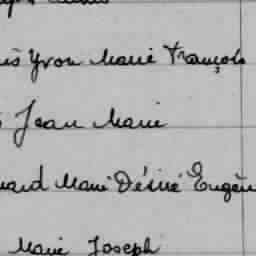 Yvon Marie François
Jean Marie
Marie Désiré Eugèn
Marie Joseph